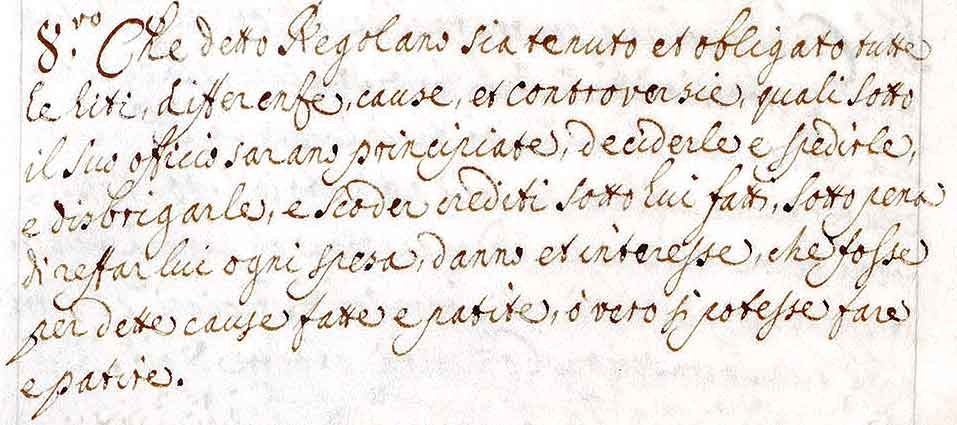 8.vo Che detto Regolano sia tenuto et obligato tutte
le liti, differense, cause, et controversie, quali sotto
il suo officio sarano principiate, deciderle e spedirle,
e disbrigarle, e scoder crediti sotto lui fatti, sotto pena
di reffar lui ogni spesa, danno et interesse, che fosse
per dette cause fatte e patite, ò vero si potesse fare
e patire.